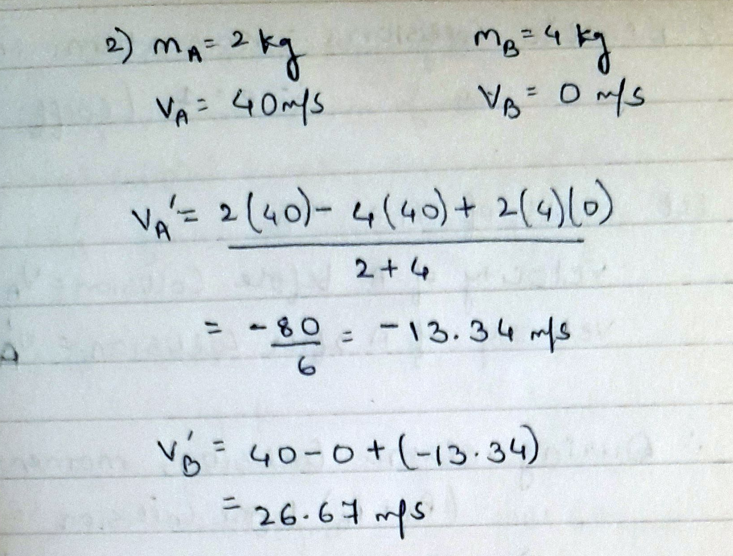 2) mA = 2 kg mB = 4 kg
VA = 40 m/s VB = 0 m/s
VA' = 2(40) - 4(40) + 2(4)(0)
2 + 4
= -80/6 = -13.34 m/s
VB' = 40 - 0 + (-13.34)
= 26.67 m/s